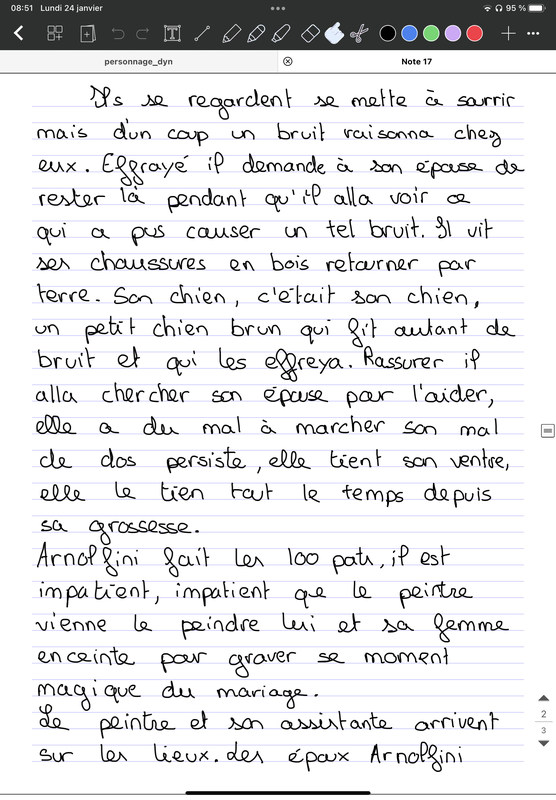 08:51 Lundi 24 janvier 95 %
personnage_dyn Note 17
Ils se regardent se mette à sourrir
mais d'un coup un bruit raisonna chez
eux. Effrayé il demande à son épouse de
rester là pendant qu'il alla voir ce
qui a pus causer un tel bruit. Il vit
ses chaussures en bois retourner par
terre. Son chien, c'était son chien,
un petit chien brun qui fit autant de
bruit et qui les effreya. Rassurer il
alla chercher son épouse pour l'aider,
elle a du mal à marcher son mal
de dos persiste, elle tient son ventre,
elle le tien tout le temps depuis
sa grossesse.
Arnolfini fait les 100 pats, il est
impatient, impatient que le peintre
vienne le peindre lui et sa femme
enceinte pour graver se moment
magique du mariage.
Le peintre et son assistante arrivent
sur les lieux. Les époux Arnolfini
2
3